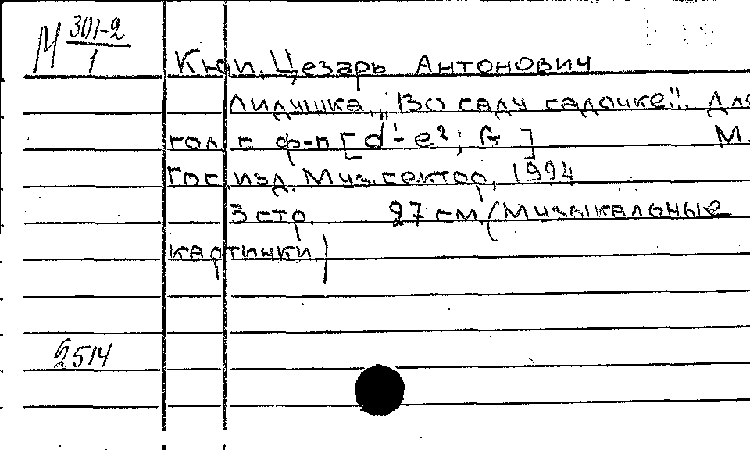 М 301-2
1
Кюи, Цезарь Антонович
Лидушка. "Во саду садочке". Для
гол. с ф-п [d¹-e²; G]
М.
Гос. изд. Муз. сектор, 1924
3 стр. 27 см (Музыкальные
картинки)
2514